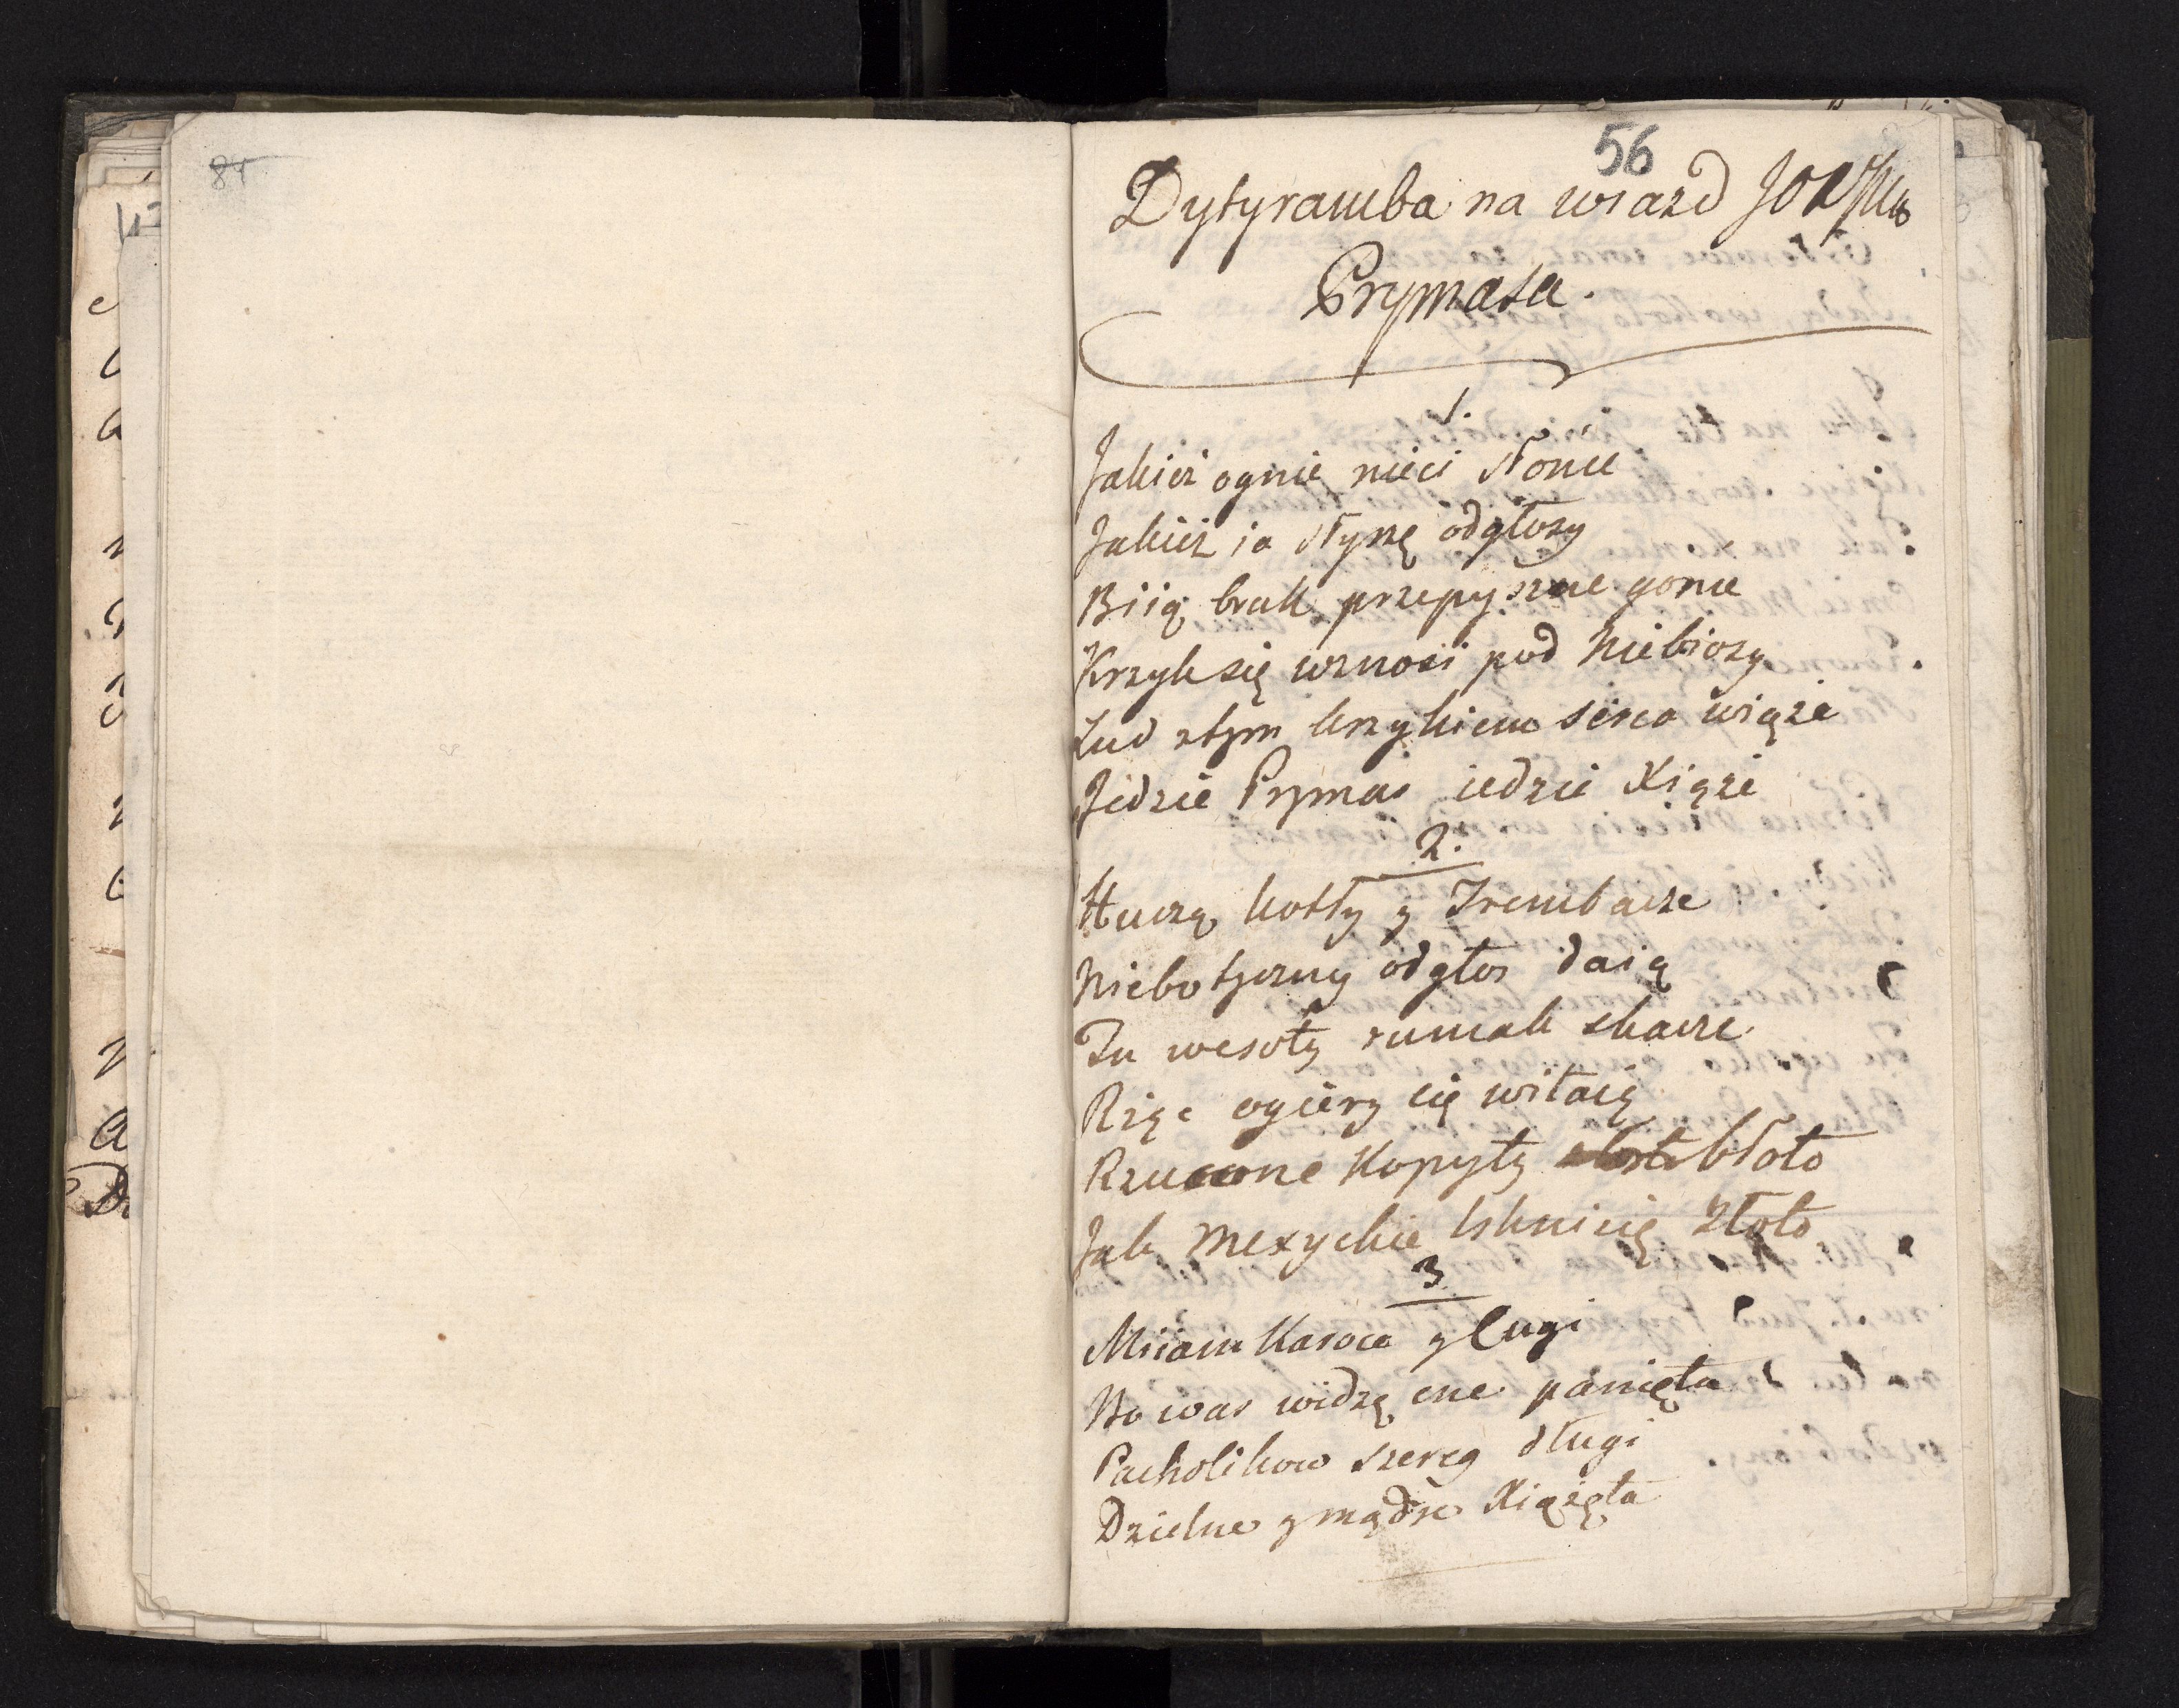 84
56
Dytyramba na wiazd JOXJMci
Prymasa.
1.
Jakież ognie nieci słonce
Jakież ia słyszę odgłosy
Biią bruk przepyszne gonce
Krzyk się wznosi pod Niebiosy
Lud ztym krzykiem serca wiąże
Jedzie Prymas iedzie Xiąże
2.
Huczą kotły y Trembacze
Niebotyczny odgłos daią
Tu wesoły rumak skacze
Rżąc ogiery cię witaią
Rzucone Kopyty błoto
Jak Mexyckie lskni się złoto
3
Miiam Karoca y Cugi
Bo was widzę cne panięta
Pacholikow szereg długi
Dzielne y mądre Xiążęta